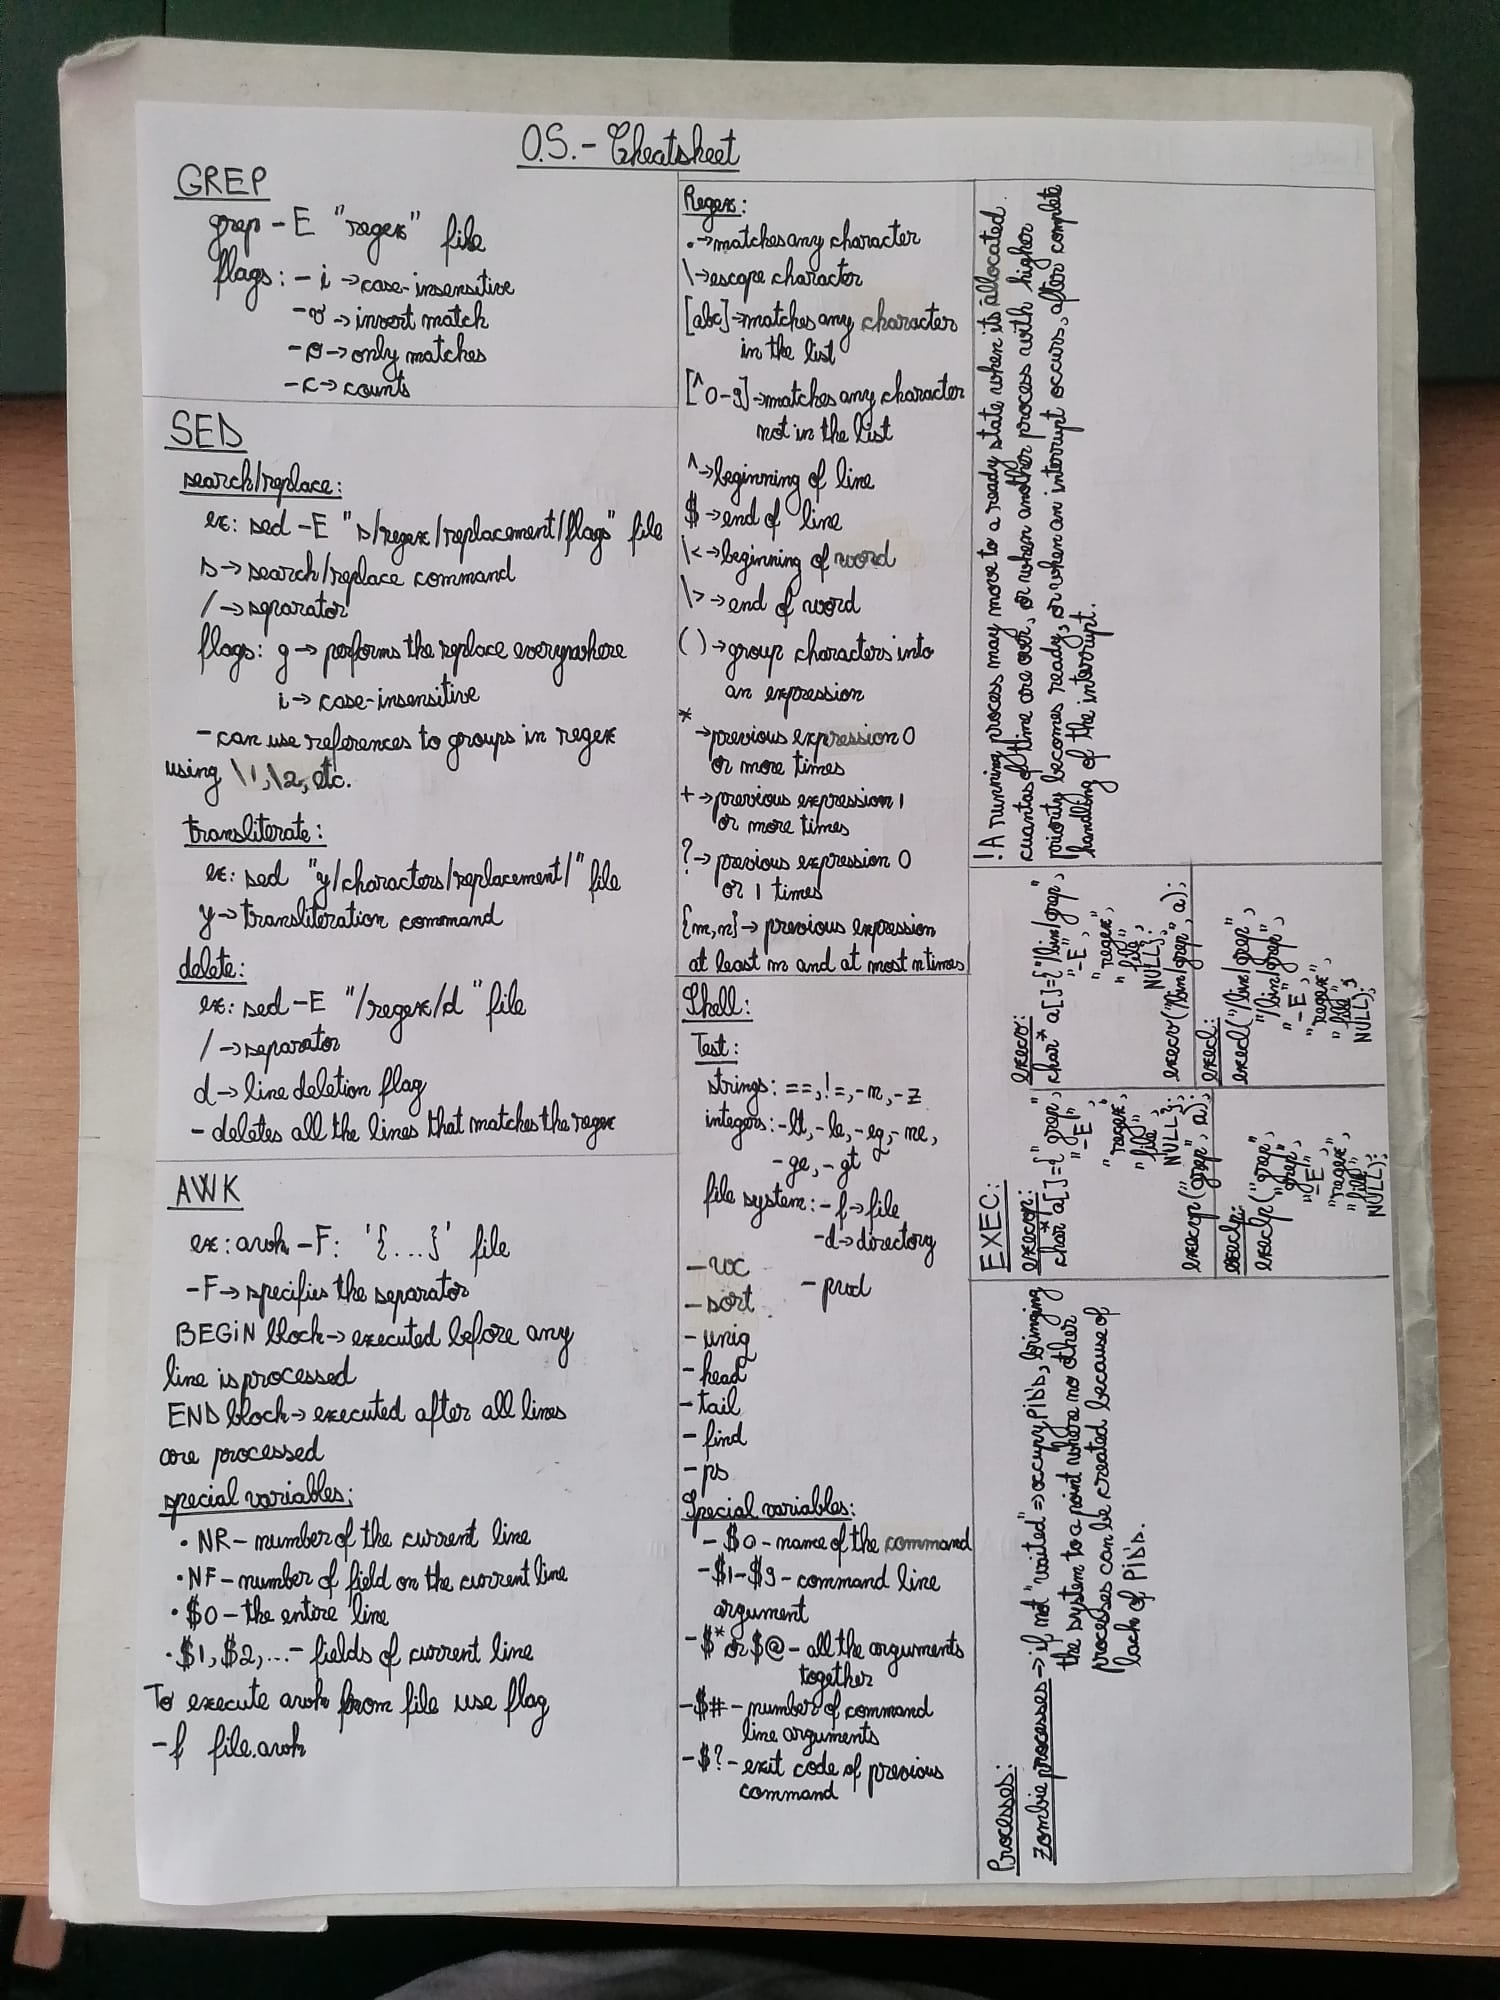 O.S.- Cheatsheet
GREP
grep -E "regex" file
flags: -i → case-insensitive
-v → invert match
-o → only matches
-c → counts
SED
search/replace:
ex: sed -E "s/regex/replacement/flags" file
s → search/replace command
/ → separator
flags: g → performs the replace everywhere
i → case-insensitive
- can use references to groups in regex
using \1,\2, etc.
transliterate:
ex: sed "y/characters/replacement/" file
y → transliteration command
delete:
ex: sed -E "/regex/d" file
/ → separator
d → line deletion flag
- deletes all the lines that matches the regex
AWK
ex: awk -F: '{...}' file
-F → specifies the separator
BEGIN block → executed before any
line is processed
END block → executed after all lines
are processed
special variables:
• NR - number of the current line
• NF - number of field on the current line
• $0 - the entire line
• $1, $2, ... - fields of current line
To execute awk from file use flag
-f file.awk
Regex:
. → matches any character
\ → escape character
[abc] → matches any character
in the list
[^0-9] → matches any character
not in the list
^ → beginning of line
$ → end of line
\< → beginning of word
\> → end of word
( ) → group characters into
an expression
* → previous expression 0
or more times
+ → previous expression 1
or more times
? → previous expression 0
or 1 times
{m,n} → previous expression
at least m and at most n times
Shell:
Test:
strings: ==, !=, -n, -z
integers: -lt, -le, -eq, -ne,
-ge, -gt
file system: -f → file
-d → directory
- wc
- sort
- pwd
- uniq
- head
- tail
- find
- ps
Special variables:
- $0 - name of the command
- $1-$9 - command line
argument
- $* or $@ - all the arguments
together
- $# - number of command
line arguments
- $? - exit code of previous
command
Processes:
zombie processes → if not "waited" => occupy PID's, bringing
the system to a point where no other
processes can be created because of
lack of PID's.
EXEC:
execvp:
char* a[]={"grep",
"-E",
"regex",
"file",
NULL};
execvp("grep", a);
execlp:
execlp("grep",
"grep",
"-E",
"regex",
"file",
NULL);
execv:
char* a[]={"/bin/grep",
"-E",
"regex",
"file",
NULL};
execv("/bin/grep", a);
execl:
execl("/bin/grep",
"/bin/grep",
"-E",
"regex",
"file",
NULL);
! A running process may move to a ready state when its allocated
cuantas of time are over, or when another process with higher
priority becomes ready, or when an interrupt occurs, after complete
handling of the interrupt.